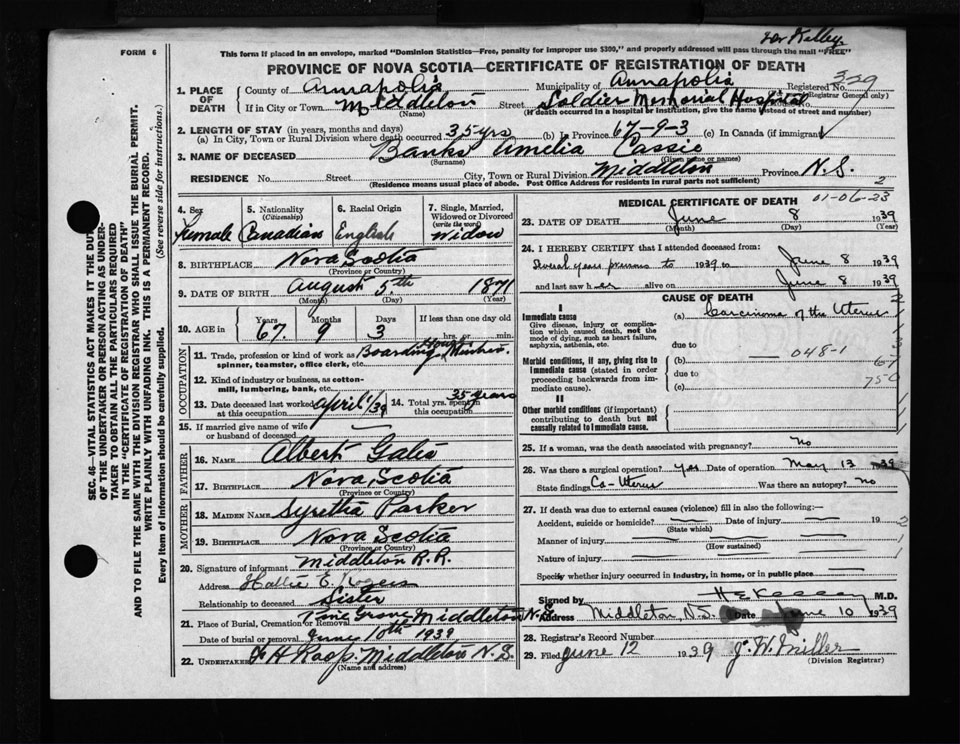 Dr Kelley
FORM 6
This form if placed in an envelope, marked "Dominion Statistics—Free, penalty for improper use $300," and properly addressed will pass through the mail "FREE"
PROVINCE OF NOVA SCOTIA—CERTIFICATE OF REGISTRATION OF DEATH
1. PLACE OF DEATH
County of Annapolis Municipality of Annapolis Registered No. 329
(Registrar General only)
If in City or Town Middleton Street Soldier Memorial Hospital
(Name) (If death occurred in a hospital or institution, give the name instead of street and number)
2. LENGTH OF STAY (in years, months and days)
(a) In City, Town or Rural Division where death occurred 35 yrs (b) In Province 67-9-3 (c) In Canada (if immigrant)
3. NAME OF DECEASED Banks Amelia Cassie
(Surname) (Given name or names)
RESIDENCE No. Street City, Town or Rural Division Middleton Province N.S.
(Residence means usual place of abode. Post Office Address for residents in rural parts not sufficient)
2
4. Sex Female
5. Nationality (Citizenship) Canadian
6. Racial Origin English
7. Single, Married, Widowed or Divorced (write the word) Widow
8. BIRTHPLACE Nova Scotia
(Province or Country)
9. DATE OF BIRTH August 5th 1871
(Month) (Day) (Year)
10. AGE in Years 67 Months 9 Days 3 If less than one day old
hrs. or min.
OCCUPATION
11. Trade, profession or kind of work as spinner, teamster, office clerk, etc. Boarding House
12. Kind of industry or business, as cotton-mill, lumbering, bank, etc.
13. Date deceased last worked at this occupation April 1/39 14. Total yrs. spent in this occupation 35 years
15. If married give name of wife or husband of deceased
FATHER
16. NAME Albert Gates
17. BIRTHPLACE Nova Scotia
(Province or Country)
MOTHER
18. MAIDEN NAME Syretha Parker
19. BIRTHPLACE Nova Scotia
(Province or Country)
20. Signature of informant Middleton R.R.
Address Hallie E. Rogers
Relationship to deceased Sister
21. Place of Burial, Cremation or Removal Pine Grove Middleton N.S.
Date of burial or removal June 10th 1939
22. UNDERTAKER Roop Middleton N.S.
(Name and address)
MEDICAL CERTIFICATE OF DEATH
01-06-23
23. DATE OF DEATH June 8 1939
(Month) (Day) (Year)
24. I HEREBY CERTIFY that I attended deceased from:
Several years previous to 1939 to June 8 1939
and last saw her alive on June 8 1939
CAUSE OF DEATH
Immediate cause
Give disease, injury or complication which caused death, not the mode of dying, such as heart failure, asphyxia, asthenia, etc.
(a) Carcinoma of the Uterus
due to
I
Morbid conditions, if any, giving rise to immediate cause (stated in order proceeding backwards from immediate cause).
(b) 048-1
due to
(c)
67
750
II
Other morbid conditions (if important) contributing to death but not causally related to immediate cause.
25. If a woman, was the death associated with pregnancy? No
26. Was there a surgical operation? Yes Date of operation May 13 1939
State findings Ca-Uterus Was there an autopsy? No
27. If death was due to external causes (violence) fill in also the following:—
Accident, suicide or homicide? Date of injury 19
(State which)
Manner of injury
(How sustained)
Nature of injury
Specify whether injury occurred in industry, in home, or in public place
Signed by M.D.
Address Middleton, N.S. Date June 10 1939
28. Registrar's Record Number
29. Filed June 12 1939 J. W. Miller
(Division Registrar)
SEC. 46—VITAL STATISTICS ACT MAKES IT THE DUTY
OF THE UNDERTAKER OR PERSON ACTING AS UNDER-
TAKER TO OBTAIN ALL THE PARTICULARS REQUIRED
IN THE "CERTIFICATE OF REGISTRATION OF DEATH"
AND TO FILE THE SAME WITH THE DIVISION REGISTRAR WHO SHALL ISSUE THE BURIAL PERMIT.
WRITE PLAINLY WITH UNFADING INK. THIS IS A PERMANENT RECORD.
Every item of information should be carefully supplied. (See reverse side for instructions.)